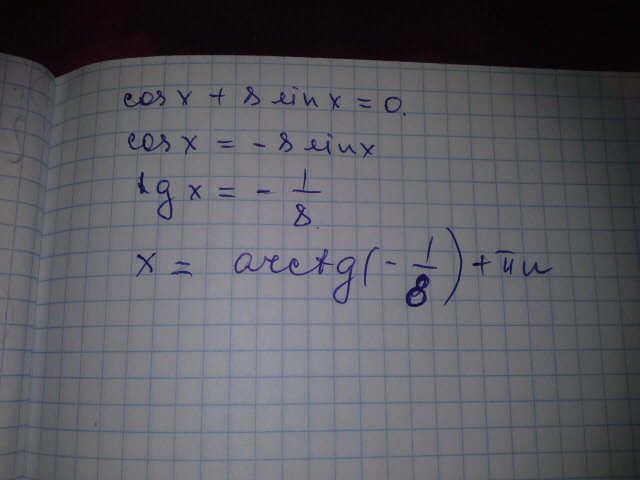 cos x + 8 sin x = 0.
cos x = - 8 sin x
tg x = - 1/8
x = arctg(- 1/8) + πn